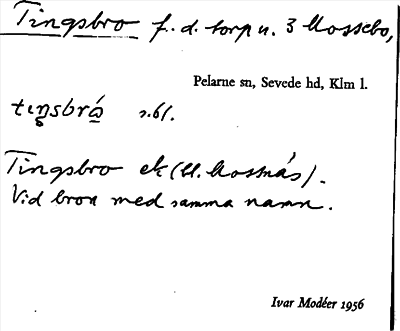 Tingsbro f. d. torp u. 3 Mossebo,
Pelarne sn, Sevede hd, Klm l.
s. 61.
Tingsbro ek (U. Mosnäs).
Vid bron med samma namn.
Ivar Modéer 1956